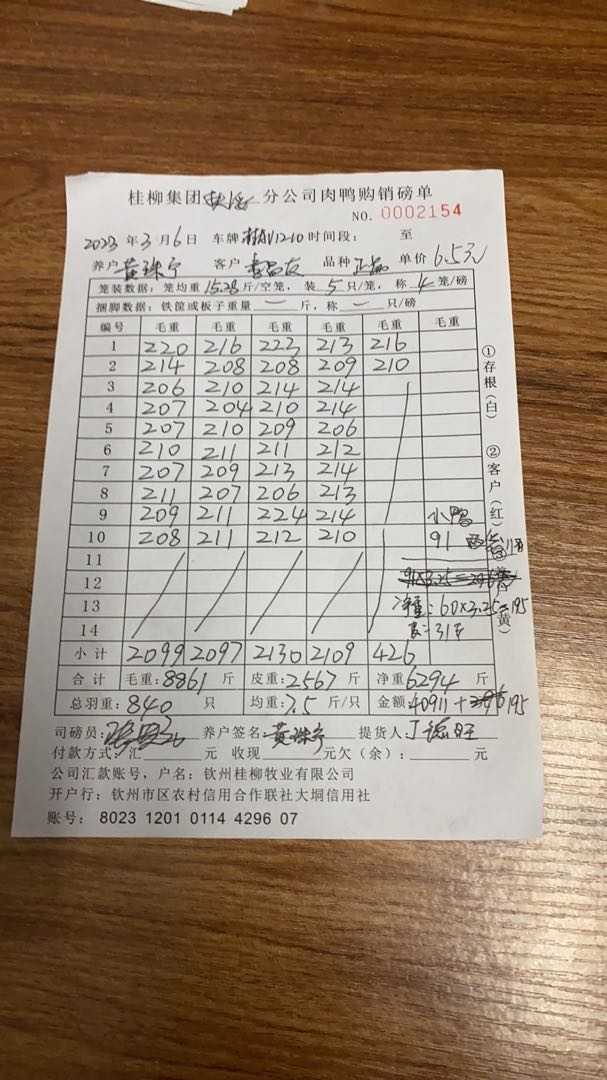 桂柳集团 分公司肉鸭购销磅单
NO. 0002154
2023年3月6日 车牌 桂AV1210 时间段: 至
养户 黄珠宁 客户 品种 正品 单价 6.5元
笼装数据:笼均重 15.28 斤/空笼,装 5 只/笼,称 4 笼/磅
捆脚数据:铁筐或板子重量 — 斤,称 — 只/磅
编号 毛重 毛重 毛重 毛重 毛重 毛重
1 220 216 223 213 216
2 214 208 208 209 210
3 206 210 214 214
4 207 204 210 214
5 207 210 209 206
6 210 211 211 212
7 207 209 213 214
8 211 207 206 213
9 209 211 224 214 小鸭
10 208 211 212 210 91
11
12
13 净重:60×3.25=195
14 皮=31斤
小计 2099 2097 2130 2109 426
合计 毛重:8861斤 皮重:2567斤 净重6294斤
总羽重:840 只 均重:7.5斤/只 金额:40911+195
司磅员: 养户签名:黄珠宁 提货人:丁德旺
付款方式:汇 元 收现 元欠(余): 元
公司汇款账号,户名:钦州桂柳牧业有限公司
开户行:钦州市区农村信用合作联社大垌信用社
账号: 8023 1201 0114 4296 07
①存根(白)
②客户(红)
黄)